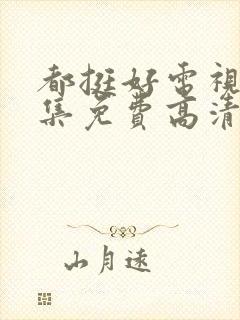 都挺好電視
集免費高清
山月遠